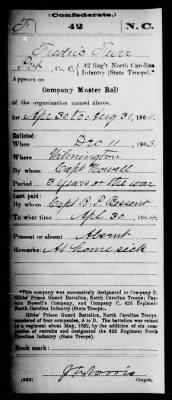 (Confederate.)
F 42 N.C.
Fredric Furr
Pvt, Co. C, 42 Reg't North Carolina
Infantry (State Troops).*
Appears on
Company Muster Roll
of the organization named above,
for Apr 30 to Aug 31, 1864.
Enlisted:
When Dec 11, 1863.
Where Wilmington
By whom Capt Howell
Period 3 years or the war
Last paid:
By whom Capt
To what time Apl 30, 1864.
Present or absent Absent
Remarks: At home sick
*This company was successively designated as Company D,
Gibbs' Prison Guard Battalion, North Carolina Troops; Captain
Howell's Company, and Company C, 42d Regiment
North Carolina Infantry (State Troops).
Gibbs' Prison Guard Battalion, North Carolina Troops,
consisted of four companies, A to D. The battalion was raised
to a regiment about May, 1862, by the addition of six companies
of recruits and designated the 42d Regiment North
Carolina Infantry (State Troops).
Book mark:
(642)
Copyist.